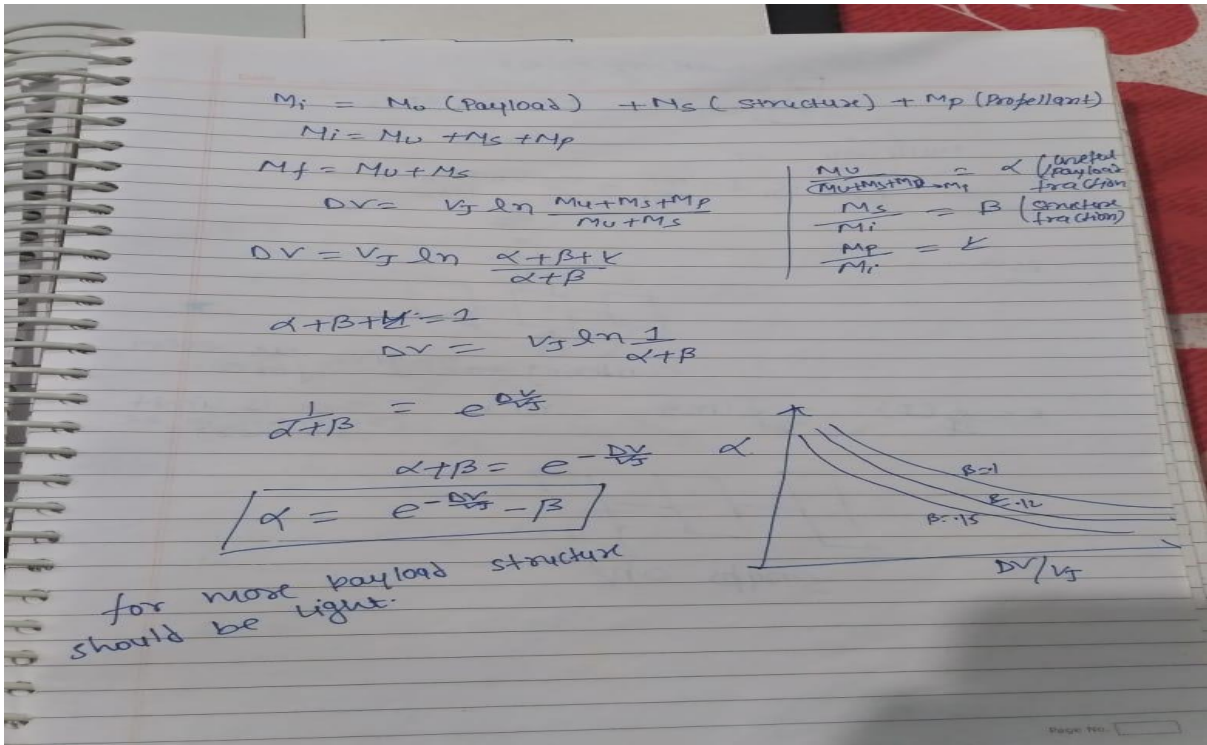 Mi = Mu (Payload) + Ms ( structure) + Mp (Propellant)
Mi = Mu + Ms + Mp
Mf = Mu + Ms
DV = VJ ln (Mu+Ms+Mp)/(Mu+Ms)
DV = VJ ln (α+β+γ)/(α+β)
Mu/(Mu+Ms+Mp)=Mi = α (useful payload fraction
Ms/Mi = β (structure fraction)
Mp/Mi = γ
α+β+γ = 1
DV = VJ ln 1/(α+β)
1/(α+β) = e^(DV/VJ)
α+β = e^(-DV/VJ)
α = e^(-DV/VJ) - β
for more payload structure
should be light.
α
β=.1
β=.12
β=.15
DV/VJ
Page No.